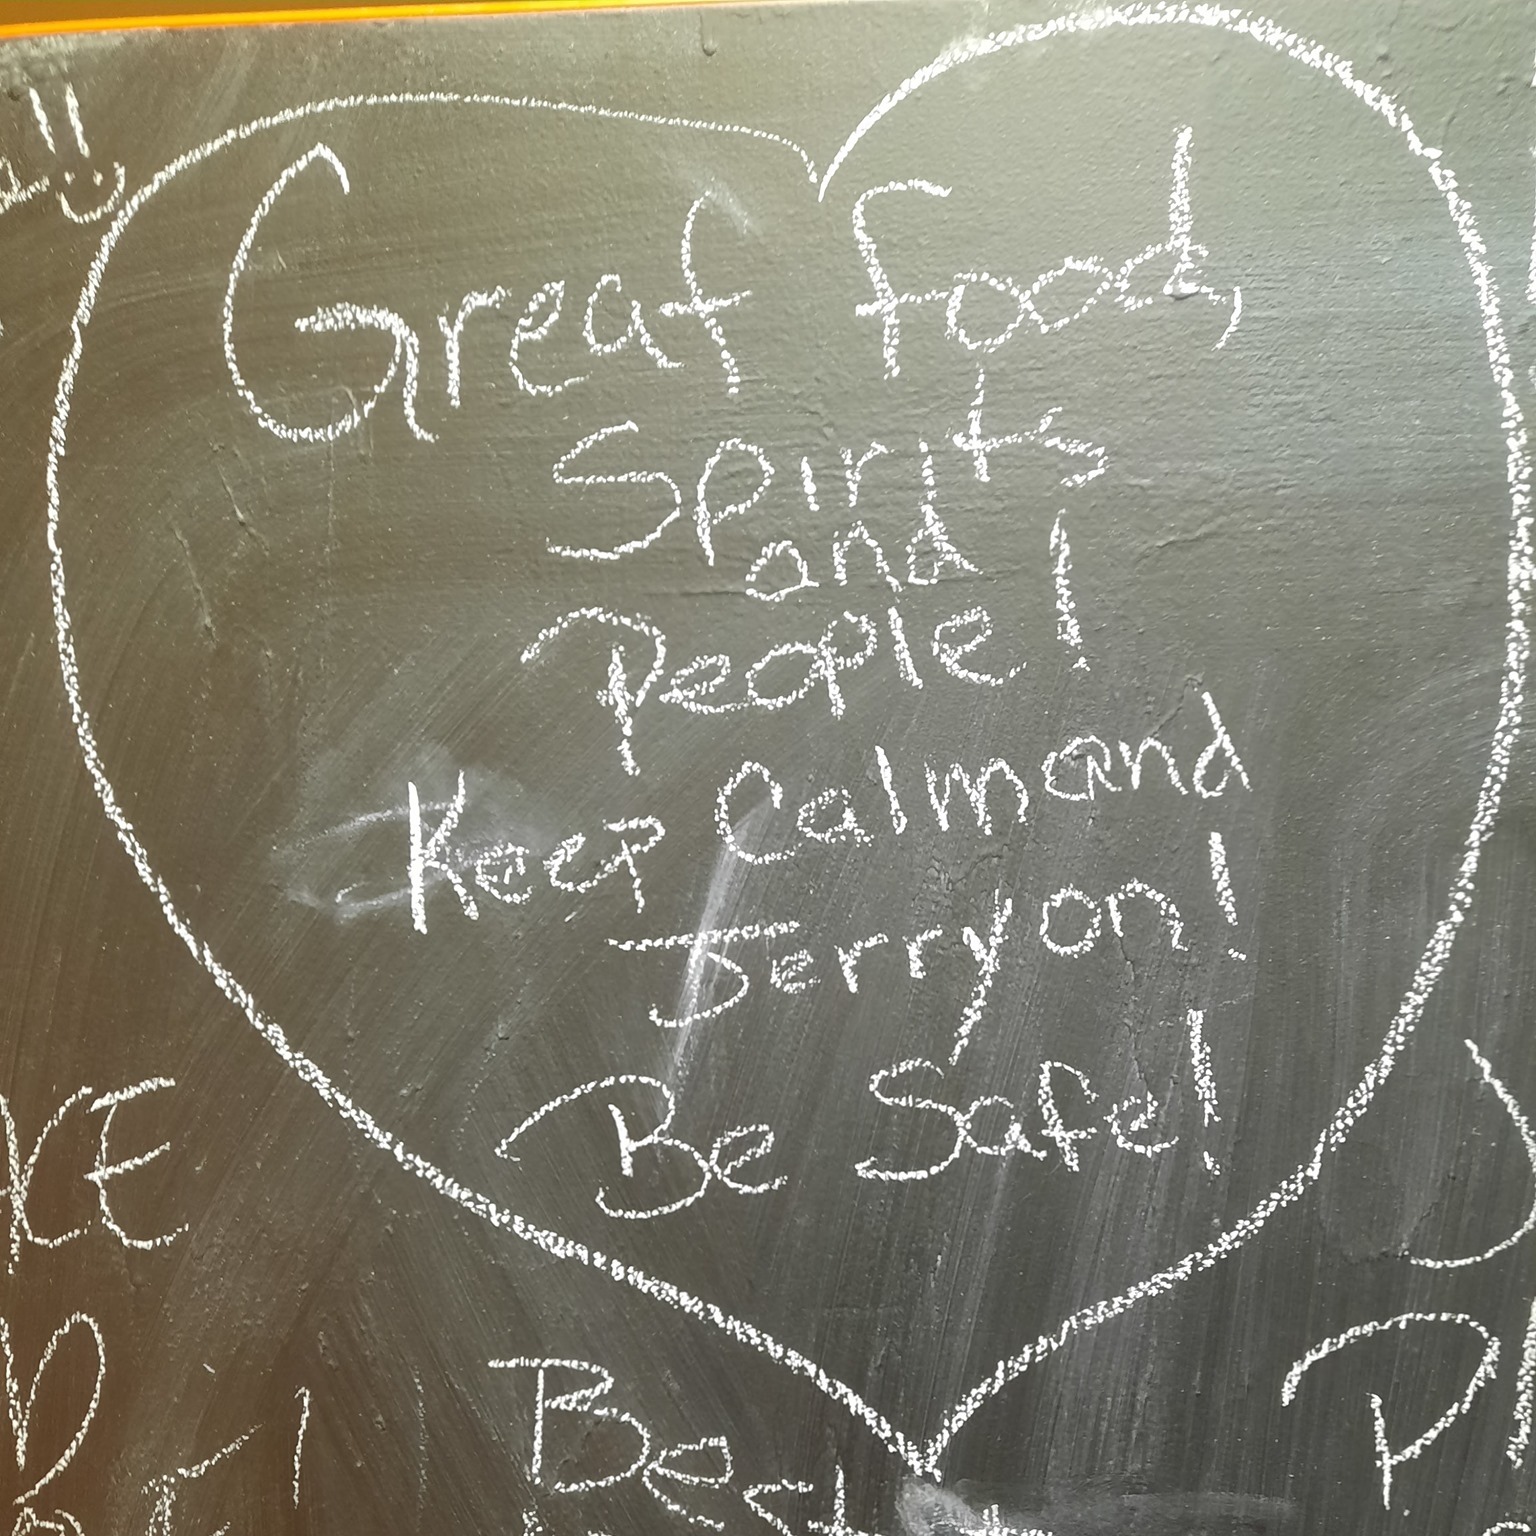 Great food,
Spirits
and
People!
Keep Calm and
Jerry on!
Be Safe!
Best